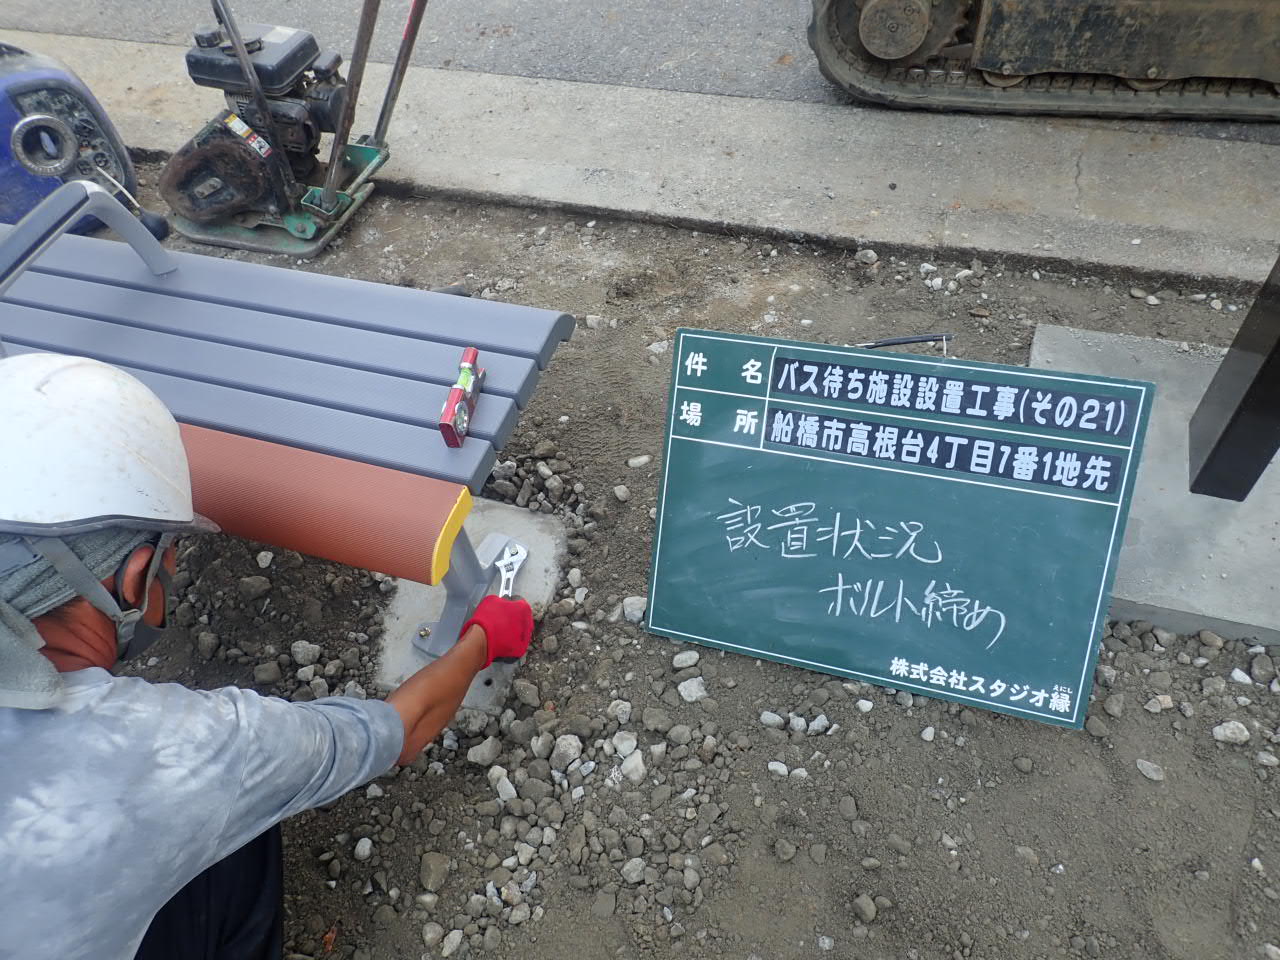 件 名 バス待ち施設設置工事(その21)
場 所 船橋市高根台4丁目7番1地先
設置状況
ボルト締め
株式会社スタジオ縁
えにし